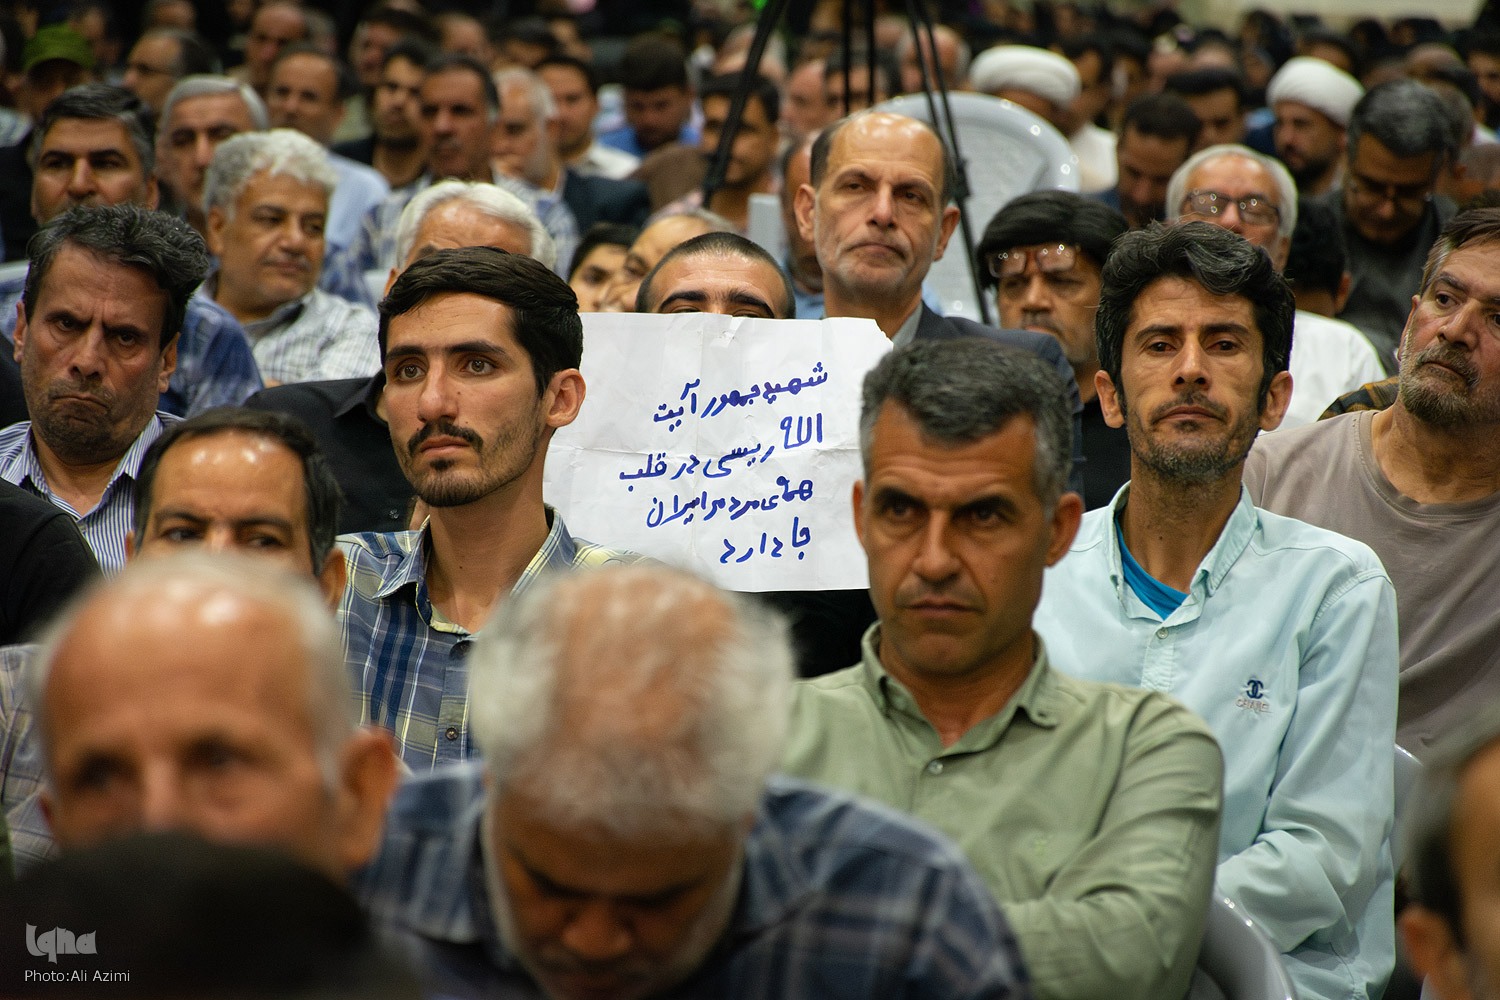 شهید جمهور آیت
الله رییسی در قلب
همه‌ی مردم ایران
جا دارد
CHANEL
Iqna
Photo:Ali Azimi